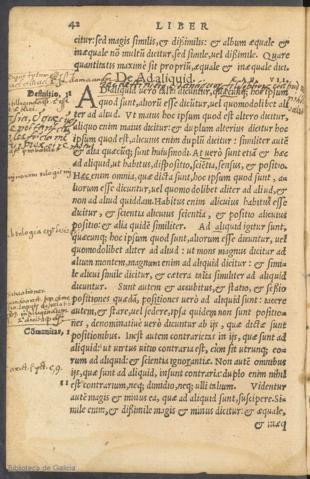 42 LIBER
citur: sed magis similis, & dißimilis: & album æquale &
inæquale nõ multũ dicitur, sed simile, vel dißimile. Quare
quantitatis maximè sit propriũ, æquale & inæquale dici.
De Adaliquid.
Definitio.
Ad aliquid verò talia dicuntur, quæcunq; hoc ipsum
quod sunt, aliorũ esse dicũtur, vel quomodolibet aliter
ad aliud. Vt maius hoc ipsum quod est altero dicitur,
aliquo enim maius dicitur: & duplum alterius dicitur hoc
ipsum quod est, alicuius enim duplũ dicitur: similiter autẽ
& alia quæcũq; sunt huiusmodi. At verò sunt etiã & hæc
ad aliquid, ut habitus, dispositio, scientia, sensus, & positio.
Hæc enim omnia, quæ dicta sunt, hoc ipsum quod sunt, a-
liorum esse dicuntur, uel quomodolibet aliter ad aliud, &
non ad aliud quiddam. Habitus enim alicuius habitus esse
dicitur, & scientia alicuius scientia, & positio alicuius
positio: & alia quidẽ similiter. Ad aliquid igitur sunt,
quæcunq; hoc ipsum quod sunt, aliorum esse dicuntur, vel
quomodolibet aliter ad aliud: ut mons magnus dicitur ad
alium montem, magnus enim ad aliquid dicitur: & simi-
le alicui simile dicitur, & cætera talia similiter ad aliquid
dicuntur. Sunt autem & accubitus, & statio, & sessio
positiones quædã, positiones uerò ad aliquid sunt: iacere
autem, & stare, uel sedere, ipsa quidem non sunt positio-
nes, denominatiuè uerò dicuntur ab ijs, quæ dictæ sunt
positionibus. Inest autem contrarietas in ijs, quæ sunt ad
Cõmunitas, 1
aliquid: ut uirtus uitio contraria est, cùm sit utrunq; eo-
rum ad aliquid: & scientia ignorantiæ. Non autẽ omnibus
ijs, quæ sunt ad aliquid, insunt contraria: duplo enim nihil
11 est contrarium, neq; dimidio, neq; ulli talium. Videntur
autẽ magis & minus ea, quæ ad aliquid sunt, suscipere. Si-
mile enim, & dißimile magis & minus dicitur: & æquale,
& inæq
Biblioteca de Galicia